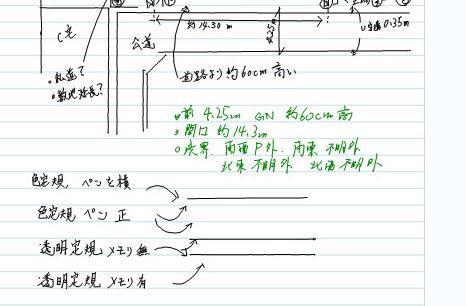 約14.30m
4.25m
U字溝0.35m
C宅
公道
・私道?
・敷地延長?
道路より約60cm高い
・前 4.25m GN 約60cm高
・間口 約14.3m
・境界. 南西P外. 南東 不明外
北東不明外 北西不明外
色定規, ペンを横
色定規 ペン 正
透明定規 メモリ無
透明定規 メモリ有